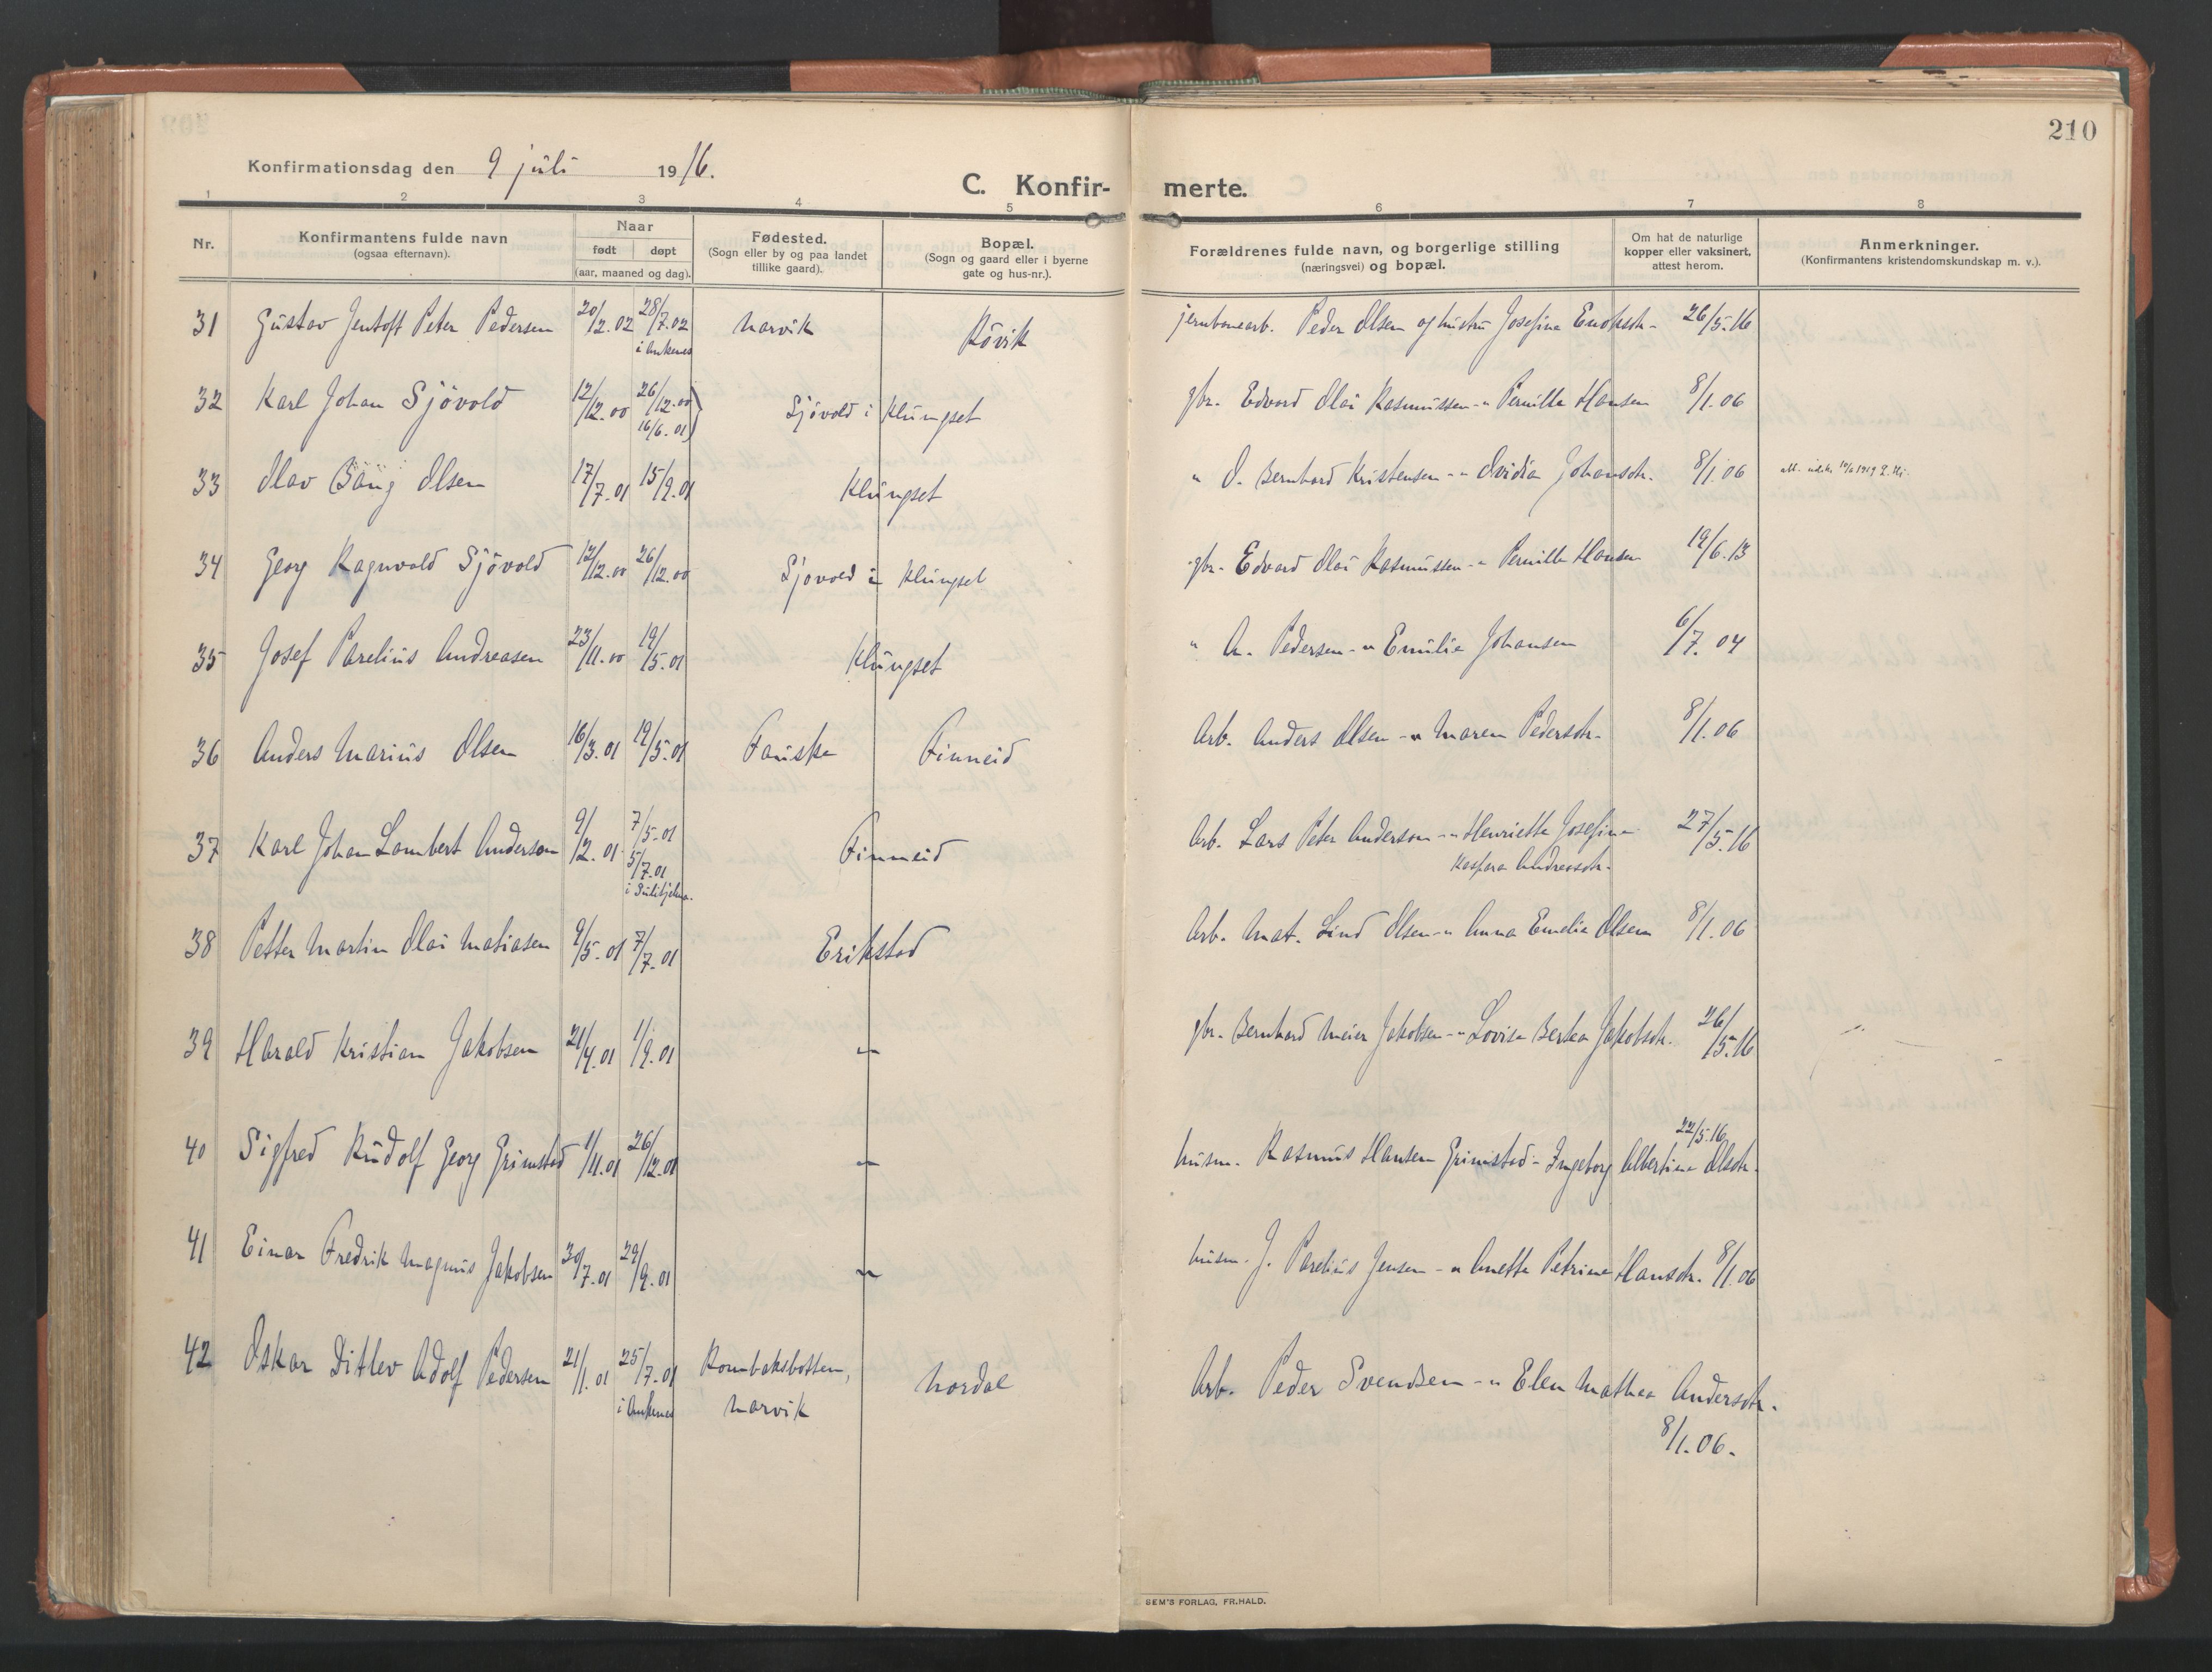 210
Konfirmationsdag den 9 juli 1916.
C. Konfir- merte.
1 2 3 4 5 6 7 8
Nr.
Konfirmantens fulde navn
(ogsaa efternavn).
Naar
født døpt
(aar, maaned og dag).
Fødested.
(Sogn eller by og paa landet
tillike gaard).
Bopæl.
(Sogn og gaard eller i byerne
gate og hus-nr.).
Forældrenes fulde navn, og borgerlige stilling
(næringsvei) og bopæl.
Om hat de naturlige
kopper eller vaksinert,
attest herom.
Anmerkninger.
(Konfirmantens kristendomskundskap m. v.).
31 Gustav Jentoft Peter Pedersen 20/12.02 28/7.02 Narvik Rövik jernbanearb. Peder Olsen og hustru Josefine Enoksdr. 26/5.16
i Ankenes
32 Karl Johan Sjövold 12/12.00 26/12.00 Sjövold i Klungset gbr. Edvard Olai Rasmussen - " Pernille Hansen 8/1.06
16/6.01
33 Olav Bäng Olsen 17/7.01 15/9.01 Klungset " O. Bernhard Kristensen - " Ovidia Johansdr. 8/1.06
34 Georg Ragnvald Sjövold 12/12.00 26/12.00 Sjovold i Klungset gbr. Edvard Olai Rasmussen - " Pernille Hansen 19/6.13
35 Josef Parelius Andreasen 23/11.00 19/5.01 Klungset " A. Pedersen - " Emilie Johansen 6/7.04
36 Anders Marius Olsen 16/3.01 19/5.01 Fauske Finneid Arb. Anders Olsen - " Maren Pedersdr. 8/1.06
37 Karl Johan Lambert Anderson 9/2.01 7/5.01 Finneid Arb. Lars Peter Anderson - " Henriette Josefine 27/5.16
5/7.01 Kaspara Andreasdr.
i Sulitjelma.
38 Petter Martin Olai Matiasen 9/5.01 7/7.01 Erikstad Arb. Mat. Lind Olsen - " Anna Emelie Olsen 8/1.06
39 Harald Kristian Jakobsen 21/4.01 1/9.01 " gbr. Bernhard Meier Jakobsen - " Lovise Berka Jakobsdr. 26/5.16
40 Sigfred Rudolf Georg Grimstad 1/11.01 26/12.01 " husm. Rasmus Hansen Grimstad - Ingeborg Albertine Olsdr. 22/5.16
41 Einar Fredrik Magnus Jakobsen 30/7.01 29/9.01 " husm. J. Parelius Jensen - " Anette Petrine Hansdr. 8/1.06
42 Oskar Ditlev Adolf Pedersen 21/1.01 25/7.01 Rombaksbotten, Nordal Arb. Peder Svendsen - " Elen Mathea Andersdr.
i Ankenes Narvik 8/1.06.
SEM'S FORLAG, FR.HALD.